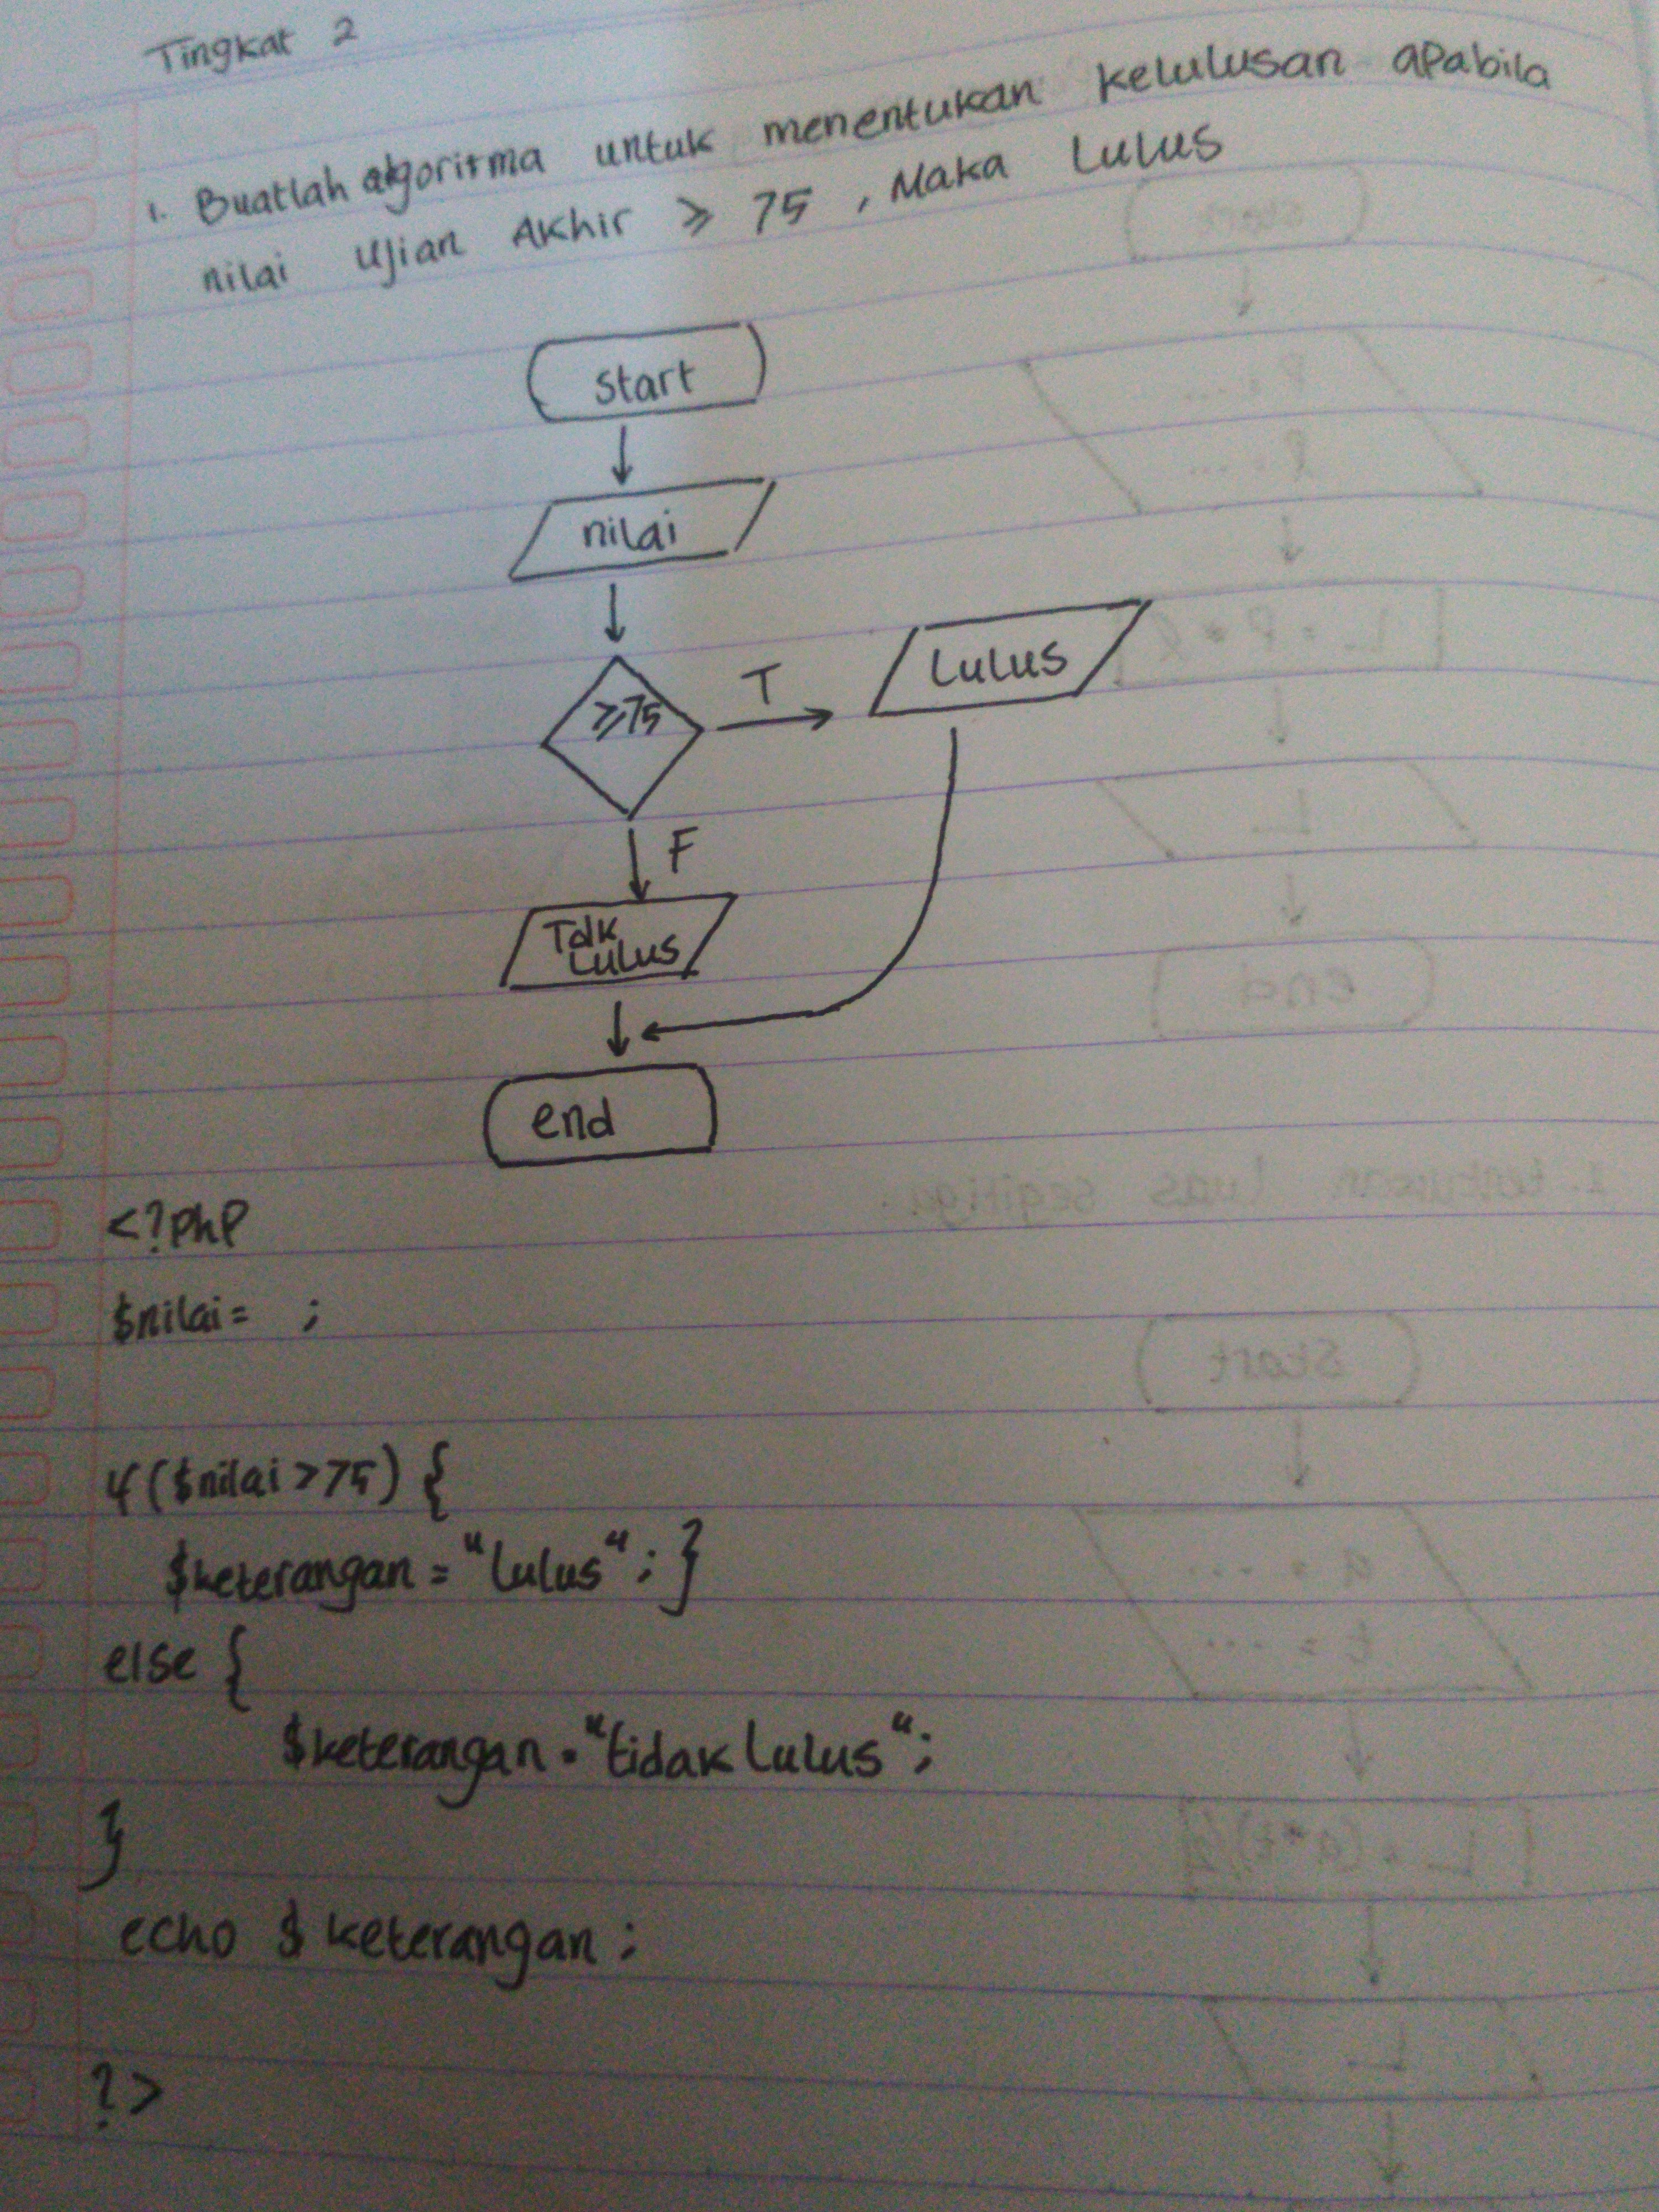 Tingkat 2
1. Buatlah algoritma untuk menentukan kelulusan apabila
nilai Ujian Akhir ≥ 75, Maka Lulus
Start
nilai
≥75
T
Lulus
F
Tdk
Lulus
end
<?php
$nilai= ;
if ($nilai >75) {
$keterangan = "lulus" ; }
else {
$keterangan = "tidak lulus" ;
}
echo $ keterangan ;
?>